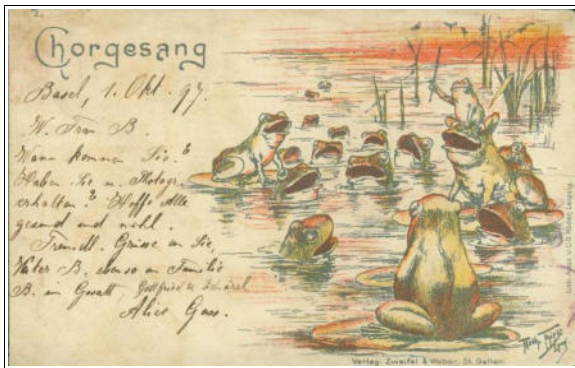 2.
Chorgesang
Basel, 1. Okt. 97.
W. Frau B.
Wann kommen Sie?
Haben Sie m. Photogr.
erhalten? Hoffe Alle
gesund und wohl.
Freundl. Grüsse an Sie,
Vater B. ebenso an Familie
B. im Gewatt, Gottfried u.
Alice Gass.
Verlag Zweifel & Weber, St. Gallen